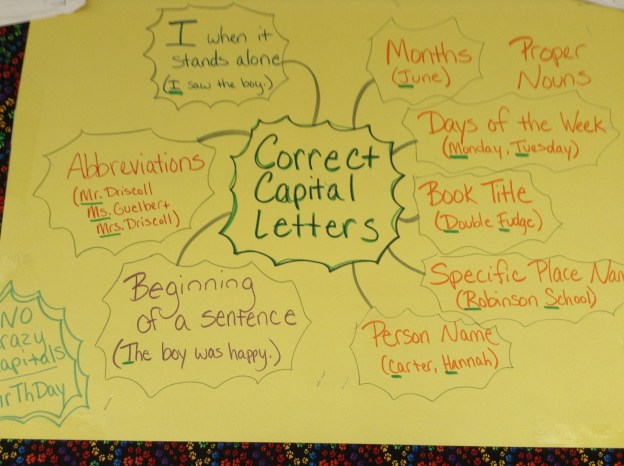 I when it
stands alone
(I saw the boy.)
Months
(June)
Proper
Nouns
Days of the Week
(Monday, Tuesday)
Abbreviations
(Mr. Driscoll
Ms. Guelbert
Mrs. Driscoll)
Correct
Capital
Letters
Book Title
(Double Fudge)
Specific Place Nam
(Robinson School)
Beginning
of a sentence
(The boy was happy.)
Person Name
(Carter, Hannah)
NO
razy
apitals
irThDay